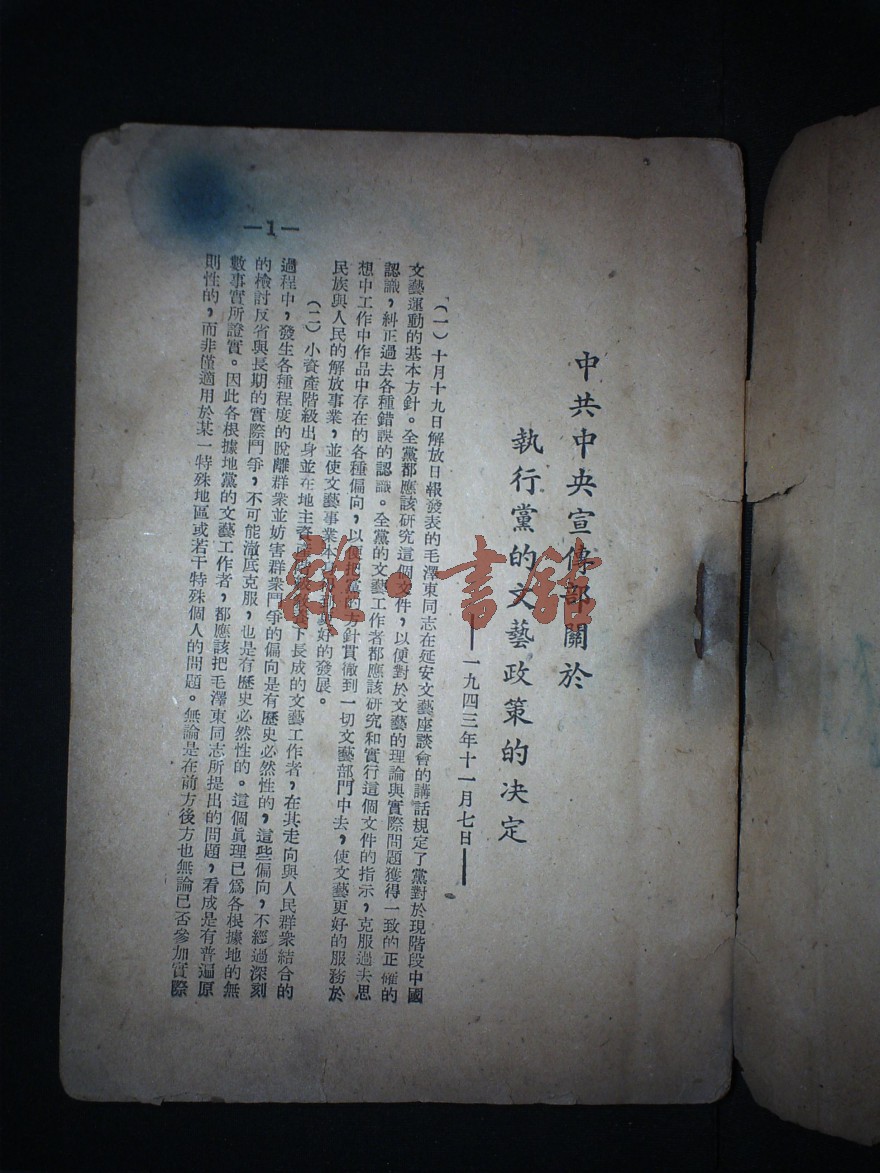 中共中央宣傳部關於
執行黨的文藝政策的決定
——一九四三年十一月七日——
（一）十月十九日解放日報發表的毛澤東同志在延安文藝座談會的講話規定了黨對於現階段中國
文藝運動的基本方針。全黨都應該研究這個文件，以便對於文藝的理論與實際問題獲得一致的正確的
認識，糾正過去各種錯誤的認識。全黨的文藝工作者都應該研究和實行這個文件的指示，克服過去思
想中工作中作品中存在的各種偏向，以便把黨的方針貫徹到一切文藝部門中去，使文藝更好的服務於
民族與人民的解放事業，並使文藝事業本身得到更好的發展。
（二）小資產階級出身並在地主資產階級教育下長成的文藝工作者，在其走向與人民群衆結合的
過程中，發生各種程度的脫離群衆並妨害群衆鬥爭的偏向是有歷史必然性的，這些偏向，不經過深刻
的檢討反省與長期的實際鬥爭，不可能澈底克服，也是有歷史必然性的。這個眞理已爲各根據地的無
數事實所證實。因此各根據地黨的文藝工作者，都應該把毛澤東同志所提出的問題，看成是有普遍原
則性的，而非僅適用於某一特殊地區或若干特殊個人的問題。無論是在前方後方也無論已否參加實際
—1—
雜·書館